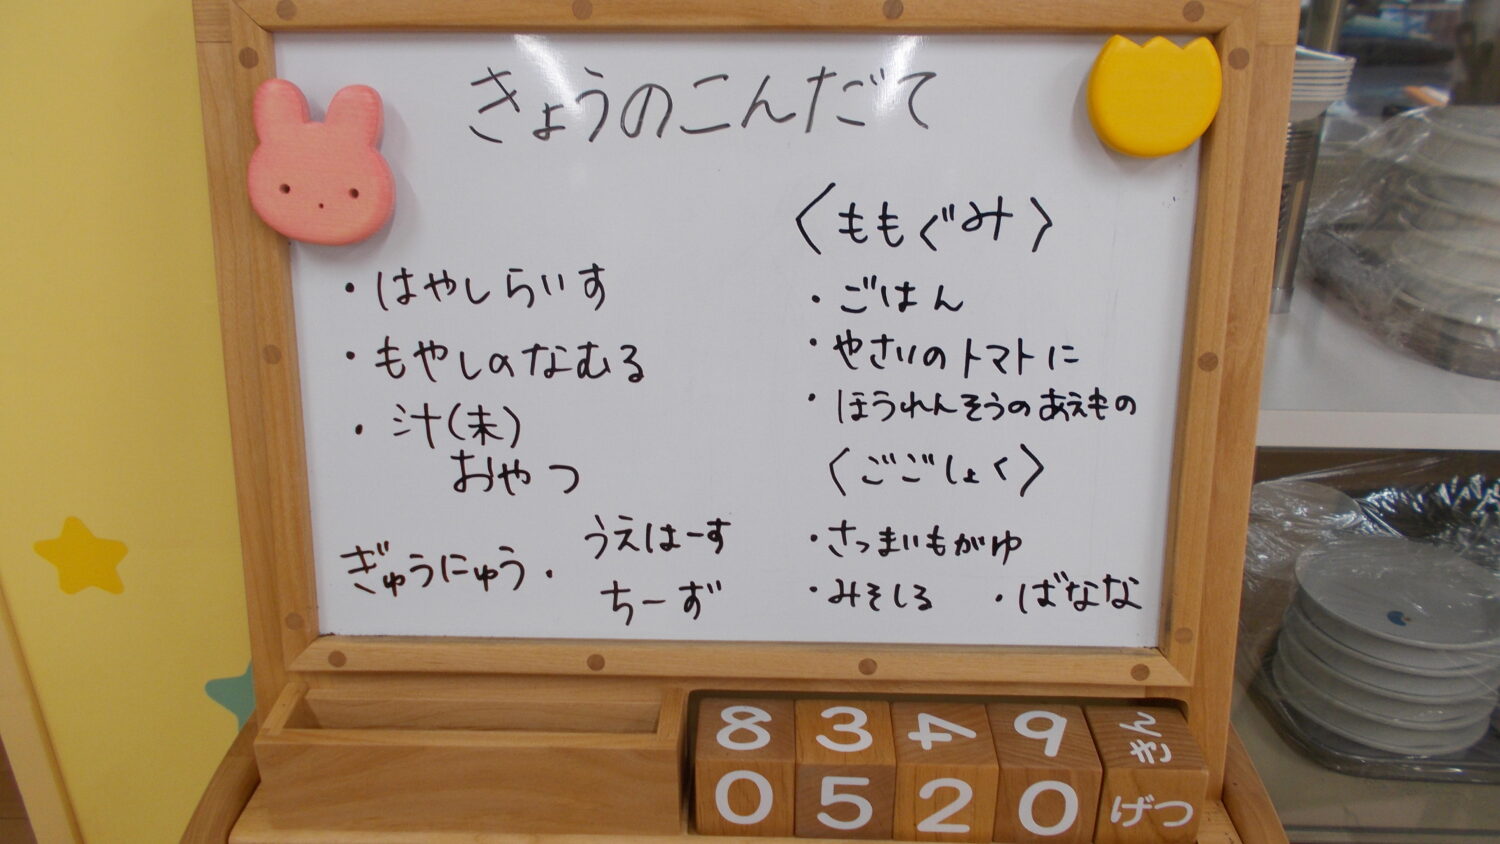 きょうのこんだて
・はやしらいす
・もやしのなむる
・汁(未)
おやつ
ぎゅうにゅう・
うえはーす
ちーず
〈ももぐみ〉
・ごはん
・やさいのトマトに
・ほうれんそうのあえもの
〈ごごしょく〉
・さつまいもがゆ
・みそしる ・ばなな
8 3 4 9 きん
0 5 2 0 げつ